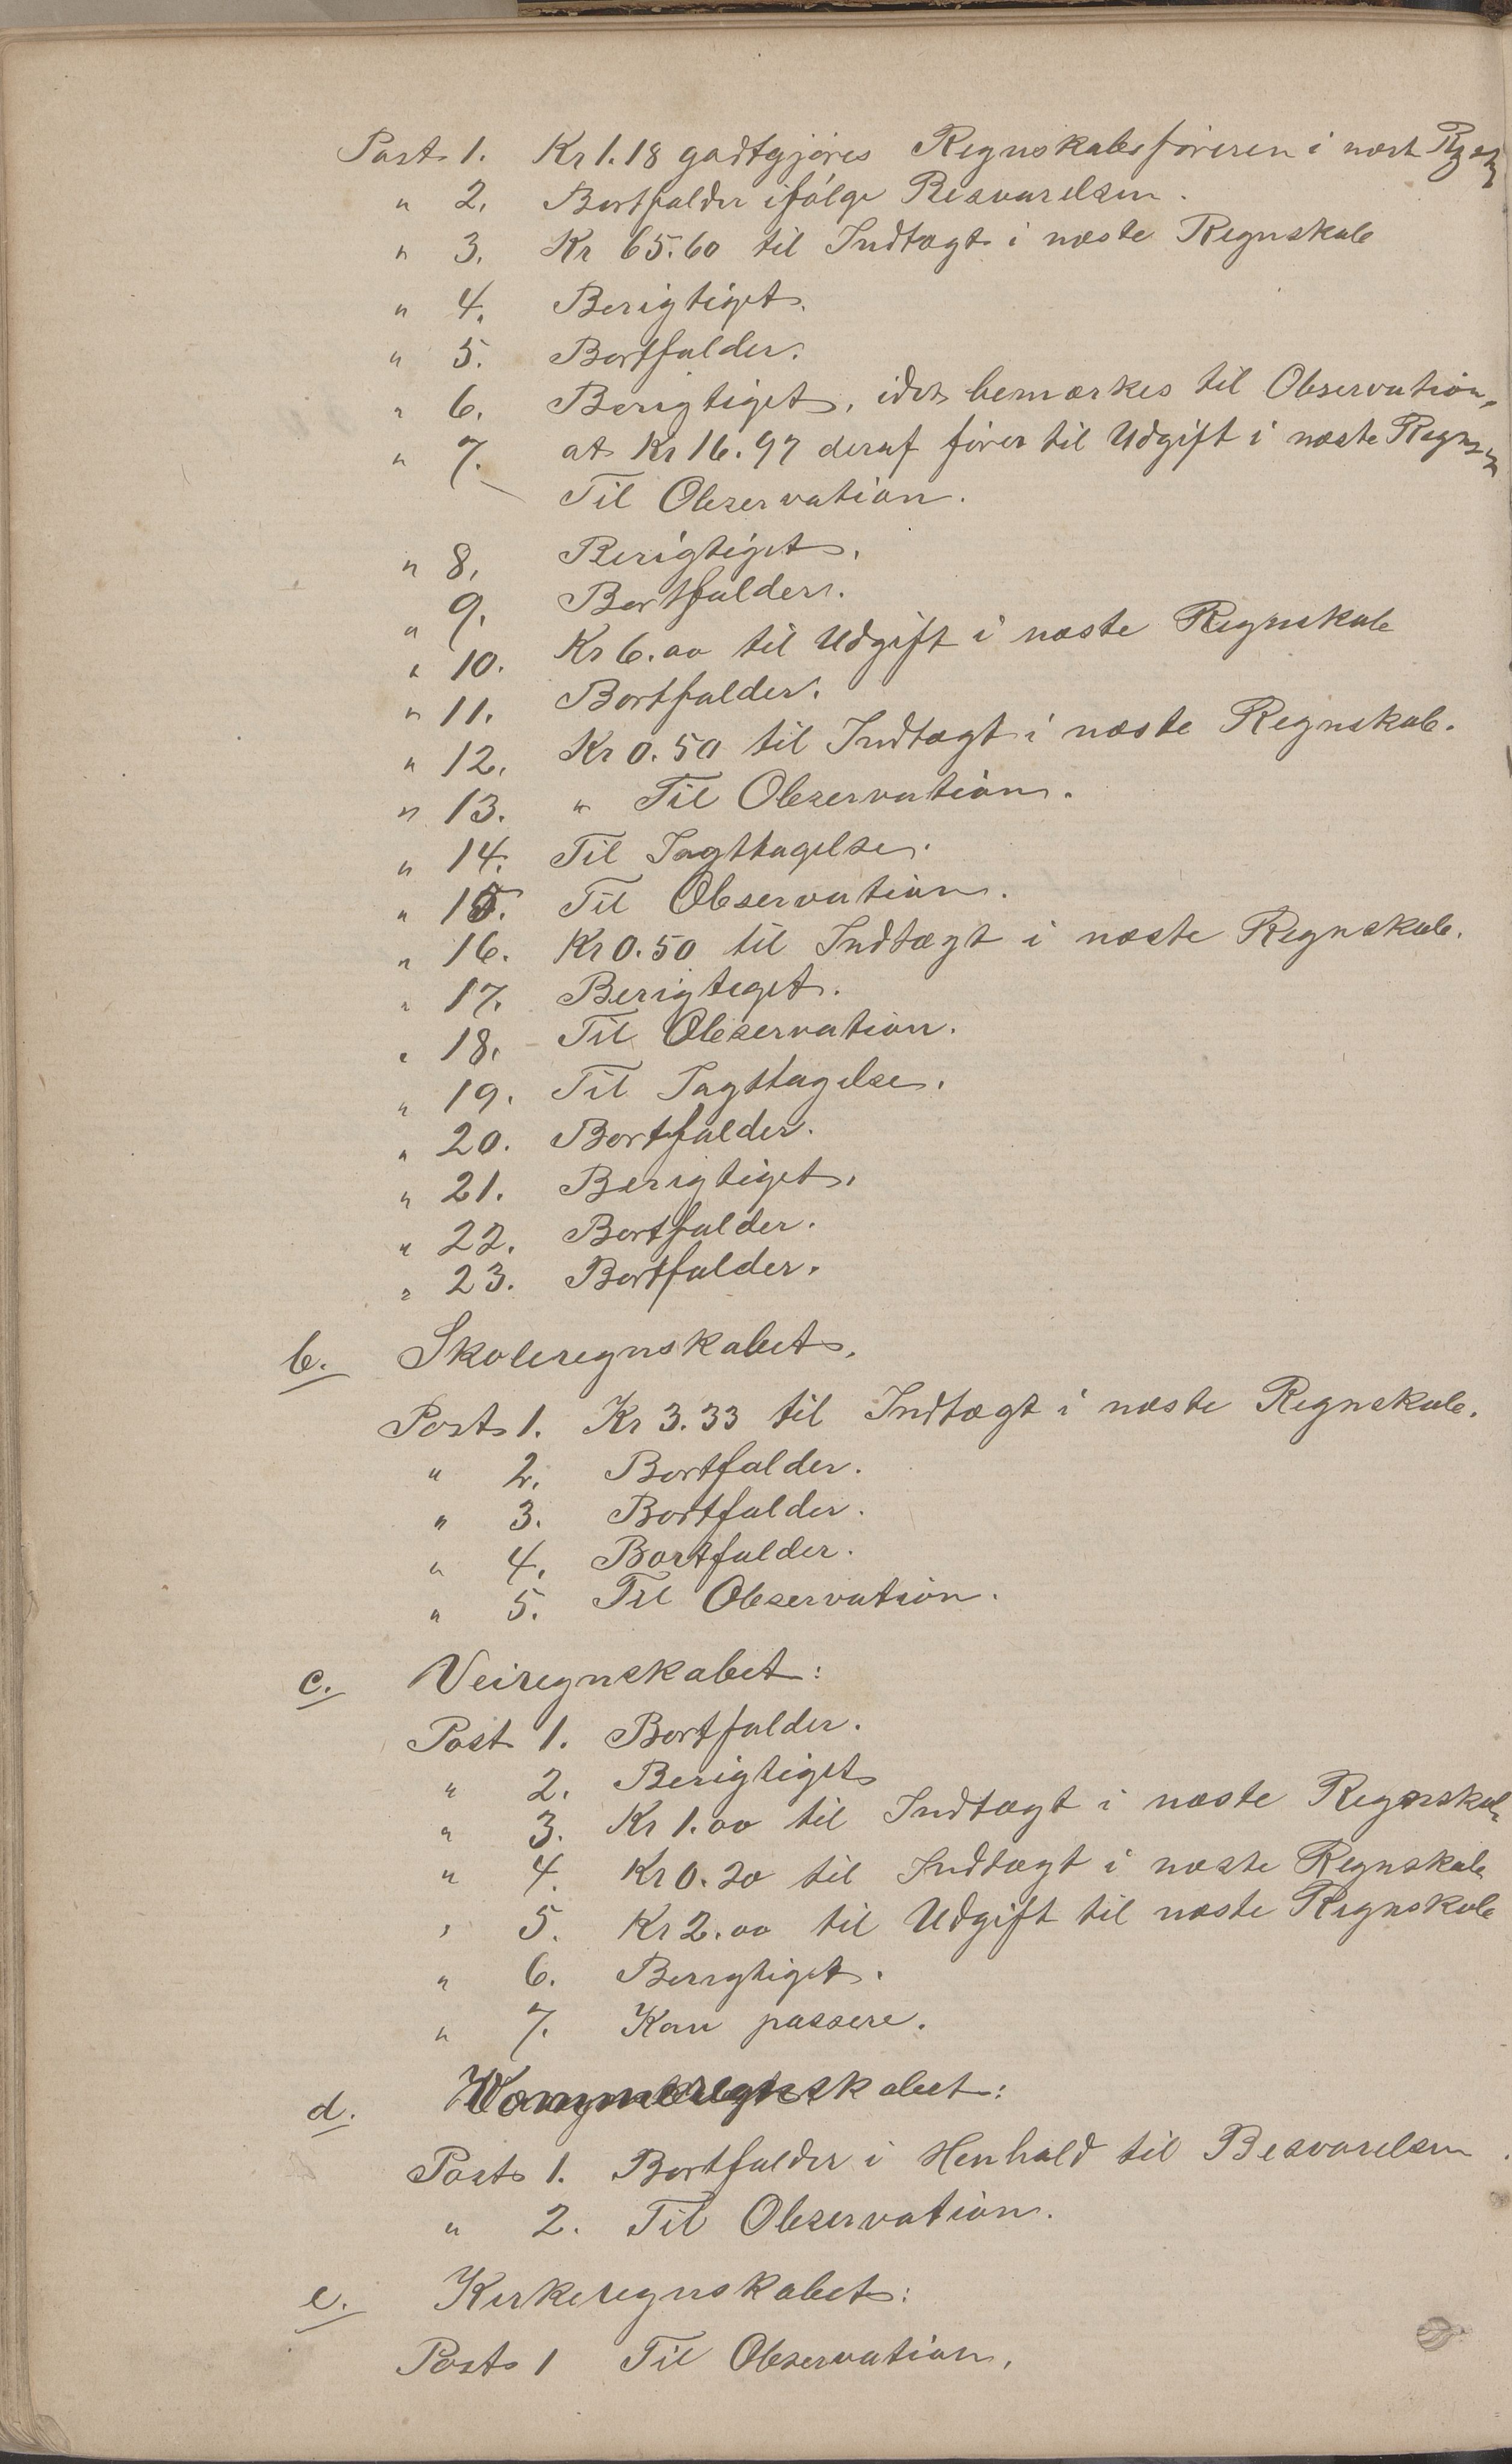 Post 1. Kr 1.18 godtgjøres Regnskabsføreren i næst
" 2. Bortfalder ifølge Besvarelsen.
" 3. Kr 65.60 til Indtægt i næste Regnskab
" 4. Berigtiget.
" 5. Bortfalder.
" 6. Berigtiget, idet bemærkes til Observation,
" 7. at Kr 16.97 deraf fører til Udgift i næste Regnsk
Til Observation.
" 8. Berigtiget.
" 9. Bortfalder.
" 10. Kr 6.00 til Udgift i næste Regnskab
" 11. Bortfalder.
" 12. Kr 0.50 til Indtægt i næste Regnskab.
" 13. " Til Observation.
" 14. Til Iagttagelse.
" 15. Til Observation.
" 16. Kr 0.50 til Indtægt i næste Regnskab.
" 17. Berigtiget.
" 18. Til Observation.
" 19. Til Iagttagelse.
" 20. Bortfalder.
" 21. Berigtiget.
" 22. Bortfalder.
" 23. Bortfalder.
b. Skoleregnskabet.
Post 1. Kr 3.33 til Indtægt i næste Regnskab.
" 2. Bortfalder.
" 3. Bortfalder.
" 4. Bortfalder.
" 5. Til Observation.
c. Veiregnskabet:
Post 1. Bortfalder.
" 2. Berigtiget
" 3. Kr 1.00 til Indtægt i næste Regnskab
" 4. Kr 0.20 til Indtægt i næste Regnskab
" 5. Kr 2.00 til Udgift til næste Regnskab
" 6. Berigtiget.
" 7. Kan passere.
d.
Post 1. Bortfalder i Henhold til Besvarelsen.
" 2. Til Observation.
e. Kirkeregnskabet:
Post 1 Til Observation.